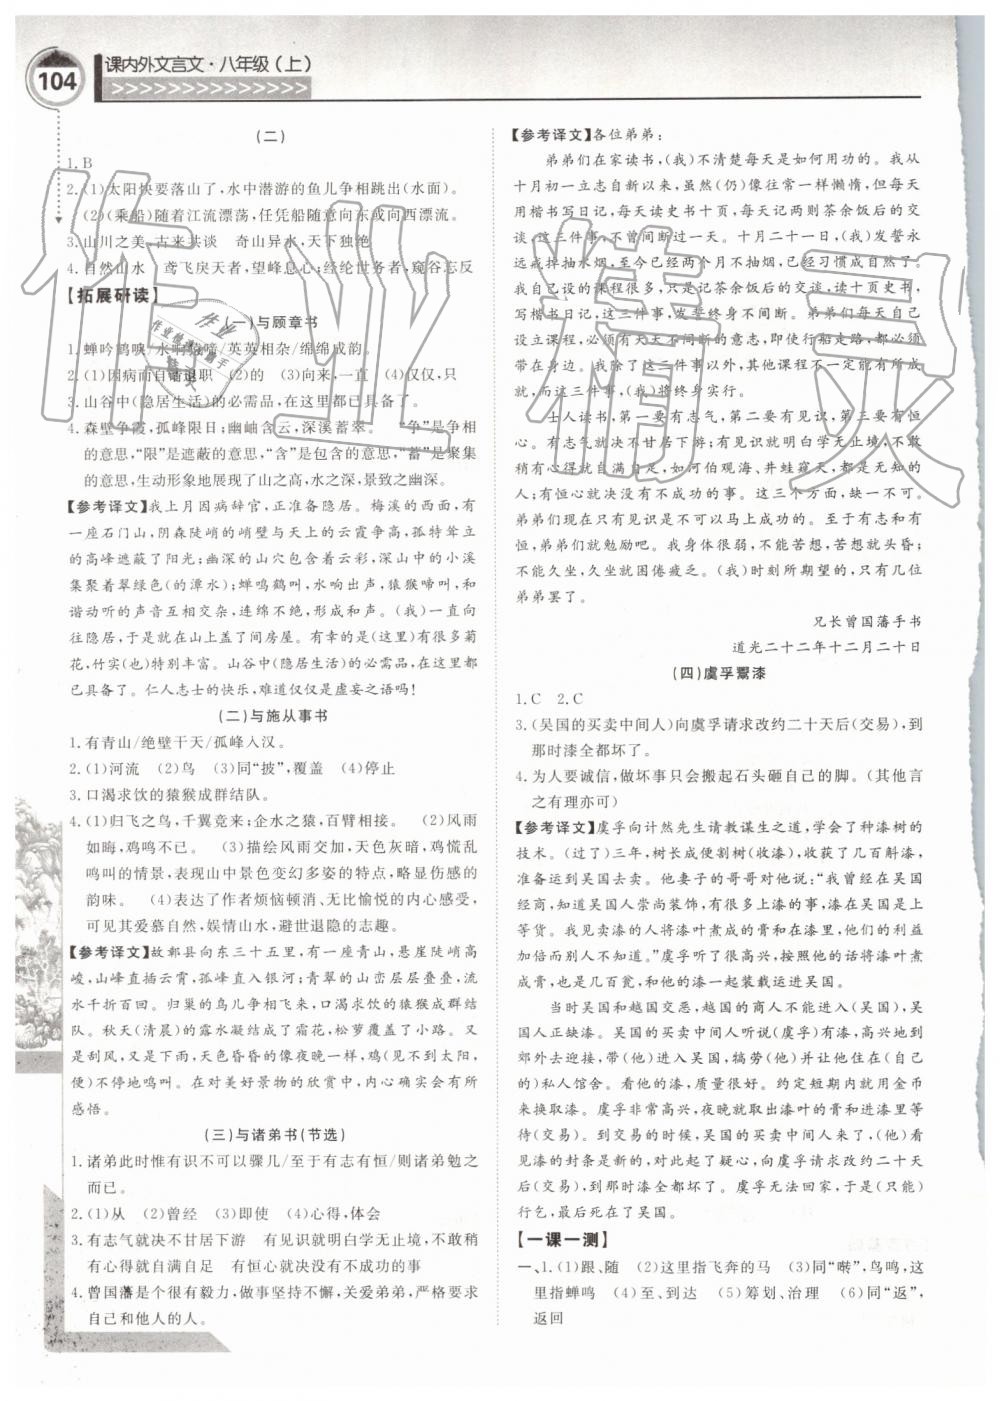 104
课内外文言文·八年级(上)
(二)
1.B
2.(1)太阳快要落山了,水中潜游的鱼儿争相跳出(水面)。
(2)(乘船)随着江流漂荡,任凭船随意向东或向西漂流。
3.山川之美,古来共谈 奇山异水,天下独绝
4.自然山水 鸢飞戾天者,望峰息心;经纶世务者,窥谷忘反
【拓展研读】
(一)与顾章书
1.蝉吟鹤唳/水响猿啼/英英相杂/绵绵成韵。
2.(1)因病而自请退职 (2)的 (3)向来,一直 (4)仅仅,只
3.山谷中(隐居生活)的必需品,在这里都已具备了。
4.森壁争霞,孤峰限日;幽岫含云,深溪蓄翠。 “争”是争相
的意思,“限”是遮蔽的意思,“含”是包含的意思,“蓄”是聚集
的意思,生动形象地展现了山之高,水之深,景致之幽深。
【参考译文】我上月因病辞官,正准备隐居。梅溪的西面,有
一座石门山,阴森陡峭的峭壁与天上的云霞争高,孤特耸立
的高峰遮蔽了阳光;幽深的山穴包含着云彩,深山中的小溪
集聚着翠绿色(的潭水);蝉鸣鹤叫,水响出声,猿猴啼叫,和
谐动听的声音互相交杂,连绵不绝,形成和声。(我)一直向
往隐居,于是就在山上盖了间房屋。有幸的是(这里)有很多菊
花,竹实(也)特别丰富。山谷中(隐居生活)的必需品,这里都
已具备了。仁人志士的快乐,难道仅仅是虚妄之语吗!
(二)与施从事书
1.有青山/绝壁干天/孤峰入汉。
2.(1)河流 (2)鸟 (3)同“披”,覆盖 (4)停止
3.口渴求饮的猿猴成群结队。
4.(1)归飞之鸟,千翼竞来;企水之猿,百臂相接。 (2)风雨
如晦,鸡鸣不已。 (3)描绘风雨交加,天色灰暗,鸡慌乱
鸣叫的情景,表现山中景色变幻多姿的特点,略显伤感的
韵味。 (4)表达了作者烦恼顿消,无比愉悦的内心感受,
可见其爱慕自然,娱情山水,避世退隐的志趣。
【参考译文】故鄣县向东三十五里,有一座青山,悬崖陡峭高
峻,山峰直插云霄,孤峰直入银河;青翠的山峦层层叠叠,流
水千折百回。归巢的鸟儿争相飞来,口渴求饮的猿猴成群结
队。秋天(清晨)的露水凝结成了霜花,松萝覆盖了小路。又
是刮风,又是下雨,天色昏昏的像夜晚一样,鸡(见不到太阳,
便)不停地鸣叫。在对美好景物的欣赏中,内心确实会有所
感悟。
(三)与诸弟书(节选)
1.诸弟此时惟有识不可以骤几/至于有志有恒/则诸弟勉之
而已。
2.(1)从 (2)曾经 (3)即使 (4)心得,体会
3.有志气就决不甘居下游 有见识就明白学无止境,不敢稍
有心得就自满自足 有恒心就决没有不成功的事
4.曾国藩是个很有毅力,做事坚持不懈,关爱弟弟,严格要求
自己和他人的人。
【参考译文】各位弟弟:
弟弟们在家读书,(我)不清楚每天是如何用功的。我从
十月初一立志自新以来,虽然(仍)像往常一样懒惰,但每天
用楷书写日记,每天读史书十页,每天记两则茶余饭后的交
谈,这三件事,不曾间断过。十月二十一日,(我)发誓永
远戒掉抽水烟,至今已经两个月不抽烟了,已经习惯成自然了。
我自己设的课程很多,只是记茶余饭后的交谈、读十页史书,
写楷书日记这三件事,发誓终身不间断。弟弟们每天自己设
立课程,必须有天天不间断的意志,即使行船走路,都要
带在身边。我除了这三件事外,其他课程不一定能有所成
就,而这三件事,(我)将终身实行。
士人读书,第一要有志气,第二要有见识,第三要有恒
心。有志气就决不甘居下游;有见识就明白学无止境,不敢
稍有心得就自满自足,如河伯观海、井蛙窥天,都是无知的
人;有恒心就决没有不成功的事。这三个方面,缺一不可。
弟弟们现在只有见识是不可以马上成功的。至于有志和有
恒,弟弟们就勉励吧。我身体很弱,不能苦想,苦想就头昏;
不能久坐,久坐就困倦疲乏。(我)时刻所期望的,只有几位
弟弟罢了。
兄长曾国藩手书
道光二十二年十二月二十日
(四)虞孚鬻漆
1.C 2.C
3.(吴国的买卖中间人)向虞孚请求改约二十天后(交易),到
那时漆全都坏了。
4.为人要诚信,做坏事只会搬起石头砸自己的脚。(其他言
之有理亦可)
【参考译文】虞孚向计然先生请教谋生之道,学会了种漆树的
技术。(过了)三年,树长成便割树(收漆),收获了几百斛漆,
准备运到吴国去卖。他妻子的哥哥对他说:“我曾经在吴国
经商,知道吴国人崇尚装饰,有很多漆的事,漆在吴国是上
等货。我见卖漆的人将漆叶煮成的膏和在漆里,他们的利益
加倍而别人不知道。”虞孚听了很高兴,按照他的话将漆叶煮
成膏,也是几百瓮,和他的漆一起装载运进吴国。
当时吴国和越国交恶,越国的商人不能进入(吴国),吴
国人正缺漆。吴国的买卖中间人听说(虞孚)有漆,高兴地到
郊外去迎接,带(他)进入吴国,犒劳(他)并让他住在(自己
的)私人馆舍。看他的漆,质量很好。约定短期内就用金币
来换取漆。虞孚非常高兴,夜晚就取出漆叶的膏和进漆里等
待(交易)。到交易的时候,吴国的买卖中间人来了,(他)看
见漆的封条是新的,对此起了疑心,向虞孚请求改约二十天
后(交易),到那时漆全都坏了。虞孚无法回家,于是(只能)
行乞,最后死在了吴国。
【一课一测】
一、1.(1)跟、随 (2)这里指飞奔的马 (3)同“啭”,鸟鸣,这
里指蝉鸣 (4)至、到达 (5)筹划、治理 (6)同“返”,
返回